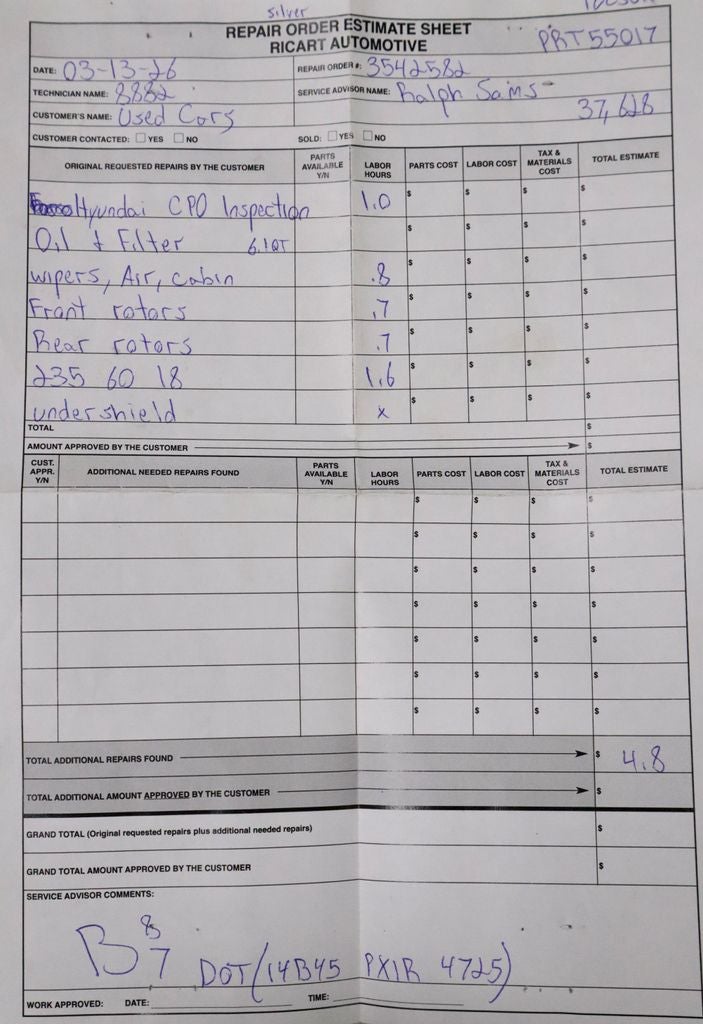 silver
REPAIR ORDER ESTIMATE SHEET
RICART AUTOMOTIVE
PRT55017
DATE: 03-13-26
REPAIR ORDER #: 3542582
TECHNICIAN NAME: 8882
SERVICE ADVISOR NAME: Ralph Sams
37,628
CUSTOMER'S NAME: Used Cars
CUSTOMER CONTACTED: ☐ YES ☐ NO SOLD: ☐ YES ☐ NO
ORIGINAL REQUESTED REPAIRS BY THE CUSTOMER PARTS AVAILABLE Y/N LABOR HOURS PARTS COST LABOR COST TAX & MATERIALS COST TOTAL ESTIMATE
Hyundai CPO Inspection 1.0 $ $ $ $
Oil & Filter 6.1QT $ $ $ $
wipers, Air, cabin .8 $ $ $ $
Front rotors .7 $ $ $ $
Rear rotors .7 $ $ $ $
235 60 18 1.6 $ $ $ $
undershield x $ $ $ $
TOTAL $
AMOUNT APPROVED BY THE CUSTOMER $
CUST. APPR. Y/N ADDITIONAL NEEDED REPAIRS FOUND PARTS AVAILABLE Y/N LABOR HOURS PARTS COST LABOR COST TAX & MATERIALS COST TOTAL ESTIMATE
$ $ $ $
$ $ $ $
$ $ $ $
$ $ $ $
$ $ $ $
$ $ $ $
$ $ $ $
TOTAL ADDITIONAL REPAIRS FOUND $ 4.8
TOTAL ADDITIONAL AMOUNT APPROVED BY THE CUSTOMER $
GRAND TOTAL (Original requested repairs plus additional needed repairs) $
GRAND TOTAL AMOUNT APPROVED BY THE CUSTOMER $
SERVICE ADVISOR COMMENTS:
B 8
7 DOT(14B45 PX1R 4725)
WORK APPROVED: DATE: TIME: